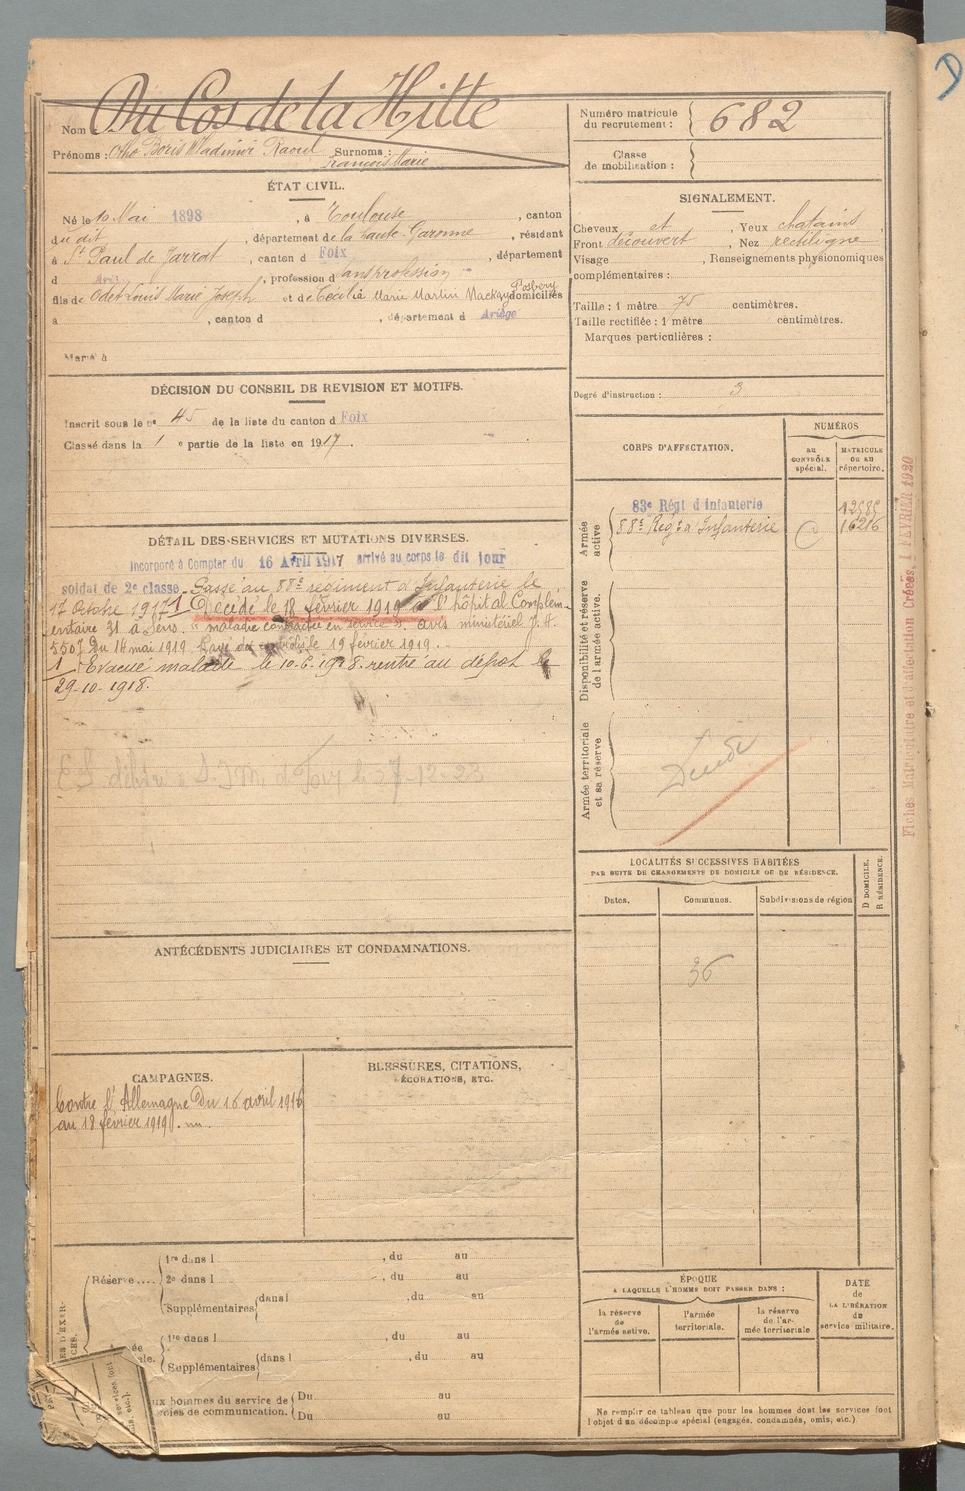 Nom Du Cos de la Hitte
Prénoms : Otho Boris Wladimir Raoul Surnoms :
François Marie
Numéro matricule
du recrutement : 682
Classe
de mobilisation :
ÉTAT CIVIL.
Né le 10 Mai 1898, à Toulouse, canton
du dit, département de la Haute-Garonne, résidant
à St Paul de Jarrat, canton d Foix, département
d, profession d sans profession
fils de Odet Louis Marie Joseph et de Cécilia Marie Martin Mackay domiciliés
à, canton d, département d Ariège
Marié à
SIGNALEMENT.
Cheveux et, Yeux chatains,
Front découvert, Nez rectiligne
Visage, Renseignements physionomiques
complémentaires :
Taille : 1 mètre 75 centimètres.
Taille rectifiée : 1 mètre centimètres.
Marques particulières :
Degré d'instruction : 3
DÉCISION DU CONSEIL DE REVISION ET MOTIFS.
Inscrit sous le n° 45 de la liste du canton d Foix
Classé dans la 1 e partie de la liste en 1917.
CORPS D'AFFECTATION.
NUMÉROS
au
CONTRÔLE
spécial.
MATRICULE
OU AU
répertoire.
Armée
active.
83e Régt d'infanterie
88e Regt d'Infanterie
16216
Disponibilité et réserve
de l'armée active.
Armée territoriale
et sa réserve
DÉTAIL DES SERVICES ET MUTATIONS DIVERSES.
Incorporé à Compter du 16 Avril 1917 arrivé au corps le dit jour
soldat de 2e classe. Passé au 88e regiment d'Infanterie le
17 Octobre 1917. Décédé le 18 février 1919 à l'hôpital Complém-
entaire 31 à Sens. "maladie contractée en service". Avis ministériel J. H.
5507 Du 14 mai 1919. Rayé des contrôles le 19 février 1919.
1 - Evacué malade le 10-6-1918. rentré au dépot le
29-10-1918.
Fiches Matriculaire et d'affectation Créées, 1 FÉVRIER 1920
LOCALITÉS SUCCESSIVES HABITÉES
PAR SUITE DE CHANGEMENTS DE DOMICILE OU DE RÉSIDENCE.
D DOMICILE.
R RÉSIDENCE.
Dates.
Communes.
Subdivisions de région
36
ANTÉCÉDENTS JUDICIAIRES ET CONDAMNATIONS.
CAMPAGNES.
Contre l'Allemagne Du 16 avril 1916
au 18 février 1919.
BLESSURES, CITATIONS,
DÉCORATIONS, ETC.
Réserve....
1re dans l, du au
2e dans l, du au
Supplémentaires dans l, du au
1re dans l, du au
Supplémentaires dans l, du au
ux hommes du service de
voies de communication.
Du au
Du au
ÉPOQUE
A LAQUELLE L'HOMME DOIT PASSER DANS :
la réserve
de
l'armée active.
l'armée
territoriale.
la réserve
de l'ar-
mée territoriale
DATE
de
LA LIBÉRATION
du
service militaire.
Ne remplir ce tableau que pour les hommes dont les services font
l'objet d'un décompte spécial (engagés, condamnés, omis, etc.).
D